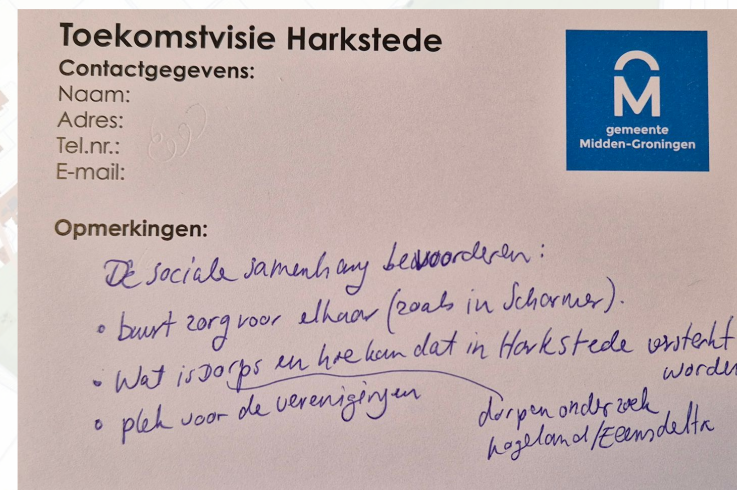 Toekomstvisie Harkstede
Contactgegevens:
Naam:
Adres:
Tel.nr.:
E-mail:
gemeente
Midden-Groningen
Opmerkingen:
De sociale samenhang bevoorderen:
• buurt zorg voor elkaar (zoals in Scharmer).
• Wat is Dorps en hoe kan dat in Harkstede versterkt
worden
• plek voor de verenigingen
dorpen onderzoek
hogeland/Eemsdelta